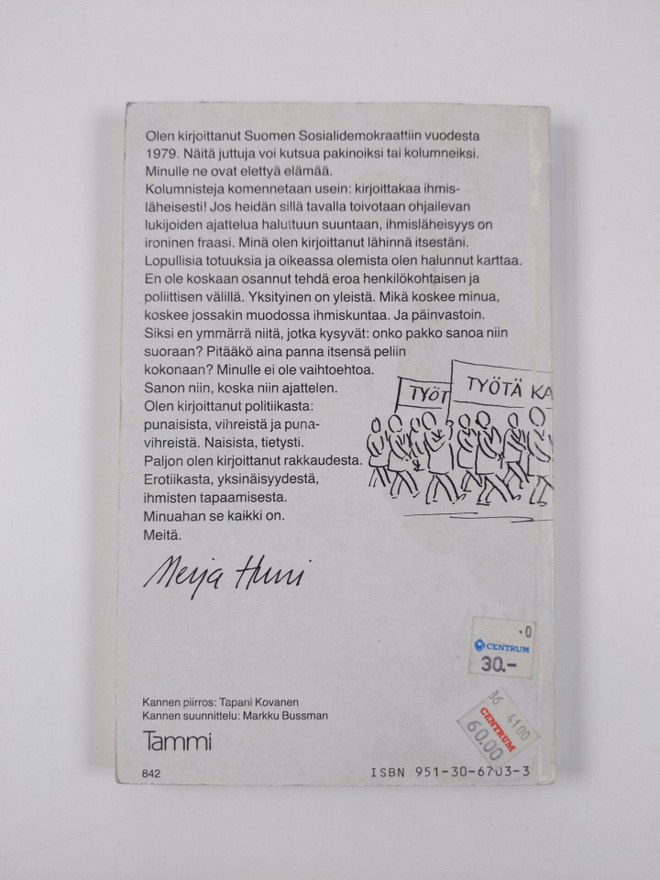 Olen kirjoittanut Suomen Sosialidemokraattiin vuodesta
1979. Näitä juttuja voi kutsua pakinoiksi tai kolumneiksi.
Minulle ne ovat elettyä elämää.
Kolumnisteja komennetaan usein: kirjoittakaa ihmis-
läheisesti! Jos heidän sillä tavalla toivotaan ohjailevan
lukijoiden ajattelua haluttuun suuntaan, ihmisläheisyys on
ironinen fraasi. Minä olen kirjoittanut lähinnä itsestäni.
Lopullisia totuuksia ja oikeassa olemista olen halunnut karttaa.
En ole koskaan osannut tehdä eroa henkilökohtaisen ja
poliittisen välillä. Yksityinen on yleistä. Mikä koskee minua,
koskee jossakin muodossa ihmiskuntaa. Ja päinvastoin.
Siksi en ymmärrä niitä, jotka kysyvät: onko pakko sanoa niin
suoraan? Pitääkö aina panna itsensä peliin
kokonaan? Minulle ei ole vaihtoehtoa.
Sanon niin, koska niin ajattelen.
Olen kirjoittanut politiikasta:
punaisista, vihreistä ja puna-
vihreistä. Naisista, tietysti.
Paljon olen kirjoittanut rakkaudesta.
Erotiikasta, yksinäisyydestä,
ihmisten tapaamisesta.
Minuahan se kaikki on.
Meitä.
TYÖT
TYÖTÄ KA
Merja Hurri
·0
CENTRUM
30.-
36 4100
CENTRUM
60.00
Kannen piirros: Tapani Kovanen
Kannen suunnittelu: Markku Bussman
Tammi
842
ISBN 951-30-6703-3